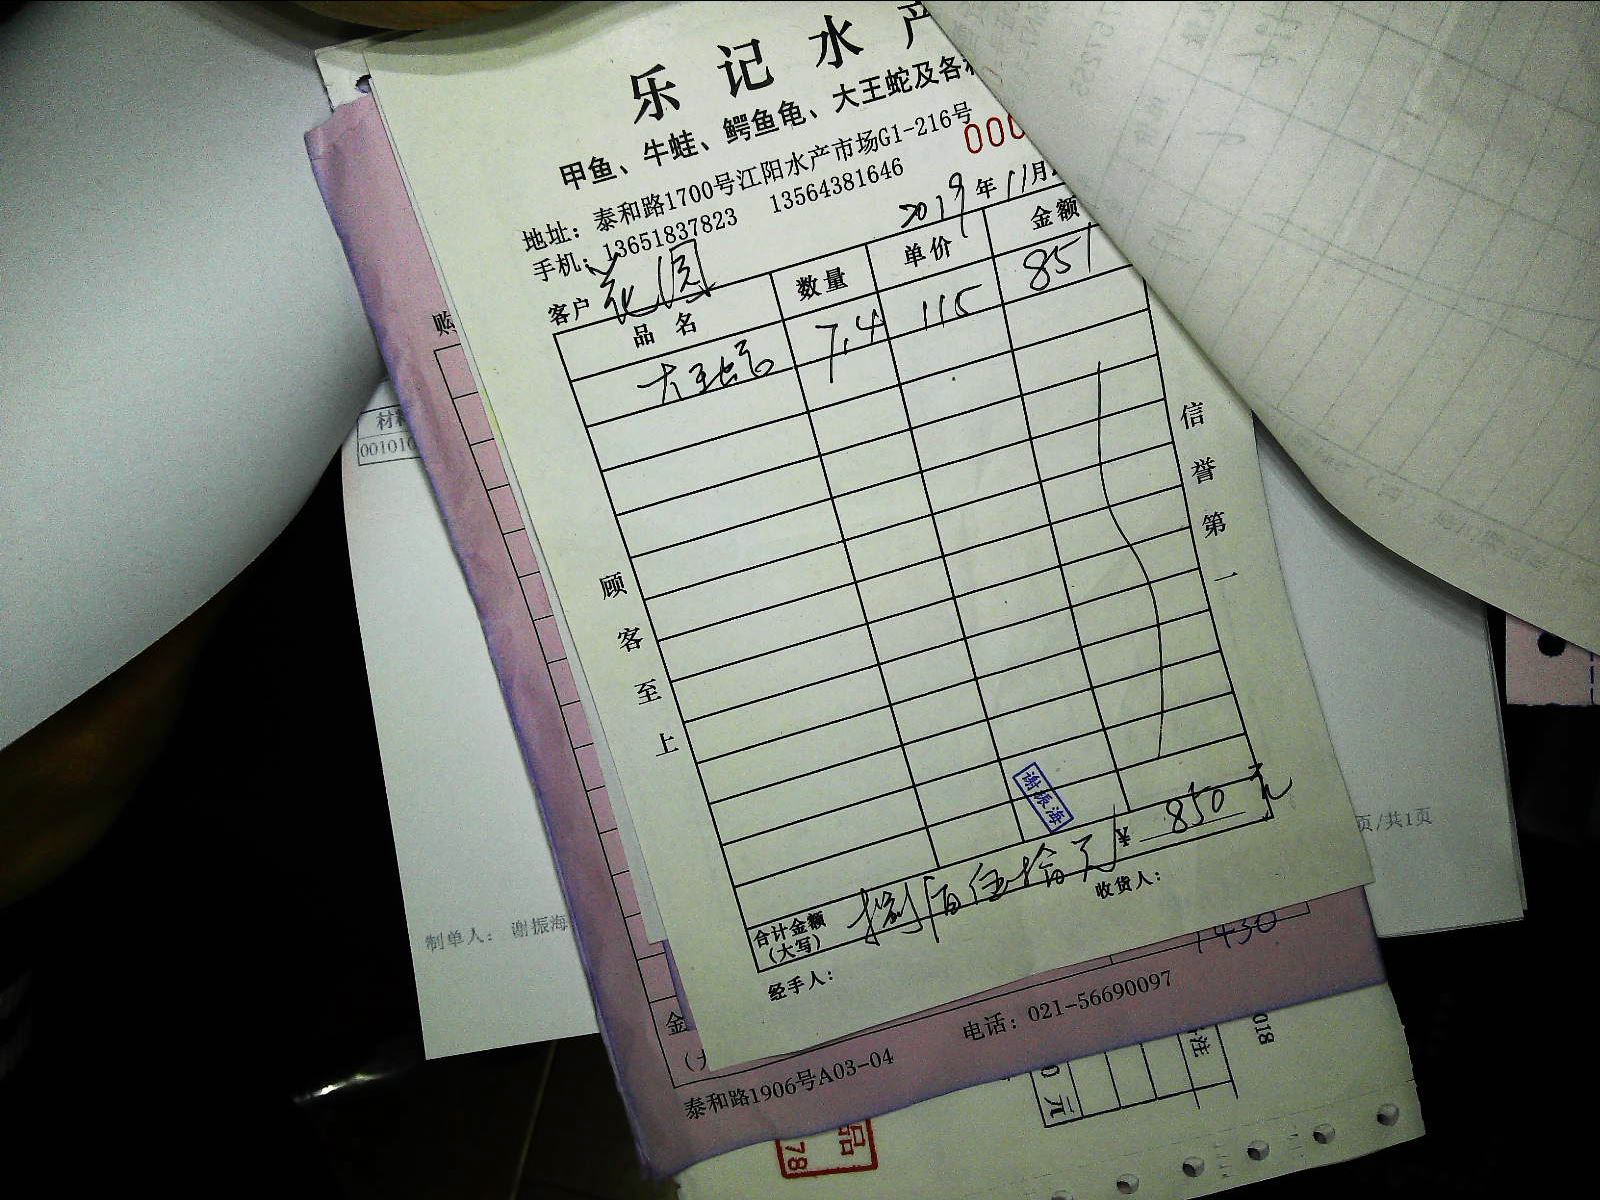 乐记水产
甲鱼、牛蛙、鳄鱼龟、大王蛇及各
地址：泰和路1700号江阳水产市场G1-216号
手机：13651837823 13564381646
000
2019年11月
客户 花园
品名 数量 单价 金额
大王蛇 7.4 115 851
顾客至上
信誉第一
谢振海
合计金额 捌佰伍拾元 ¥ 850 元
(大写)
经手人： 收货人：
购
材料
001010
制单人： 谢振海
页/共1页
1430
金
泰和路1906号A03-04 电话：021-56690097
018
注
0元
品
78